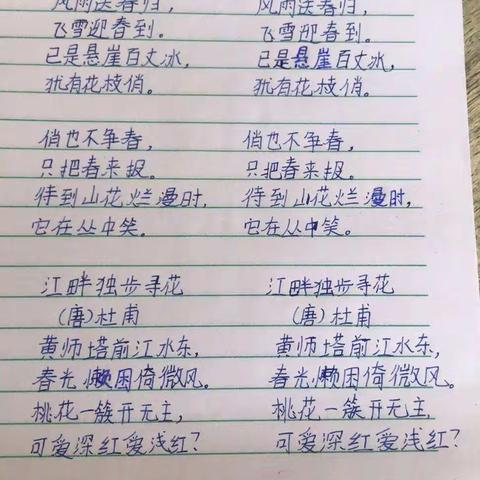 风雨送春归，
飞雪迎春到。
已是悬崖百丈冰，
犹有花枝俏。
俏也不争春，
只把春来报。
待到山花烂漫时，
它在丛中笑。
江畔独步寻花
(唐)杜甫
黄师塔前江水东，
春光懒困倚微风。
桃花一簇开无主，
可爱深红爱浅红？
风雨送春归，
飞雪迎春到。
已是悬崖百丈冰，
犹有花枝俏。
俏也不争春，
只把春来报。
待到山花烂漫时，
它在丛中笑。
江畔独步寻花
(唐)杜甫
黄师塔前江水东，
春光懒困倚微风。
桃花一簇开无主，
可爱深红爱浅红？